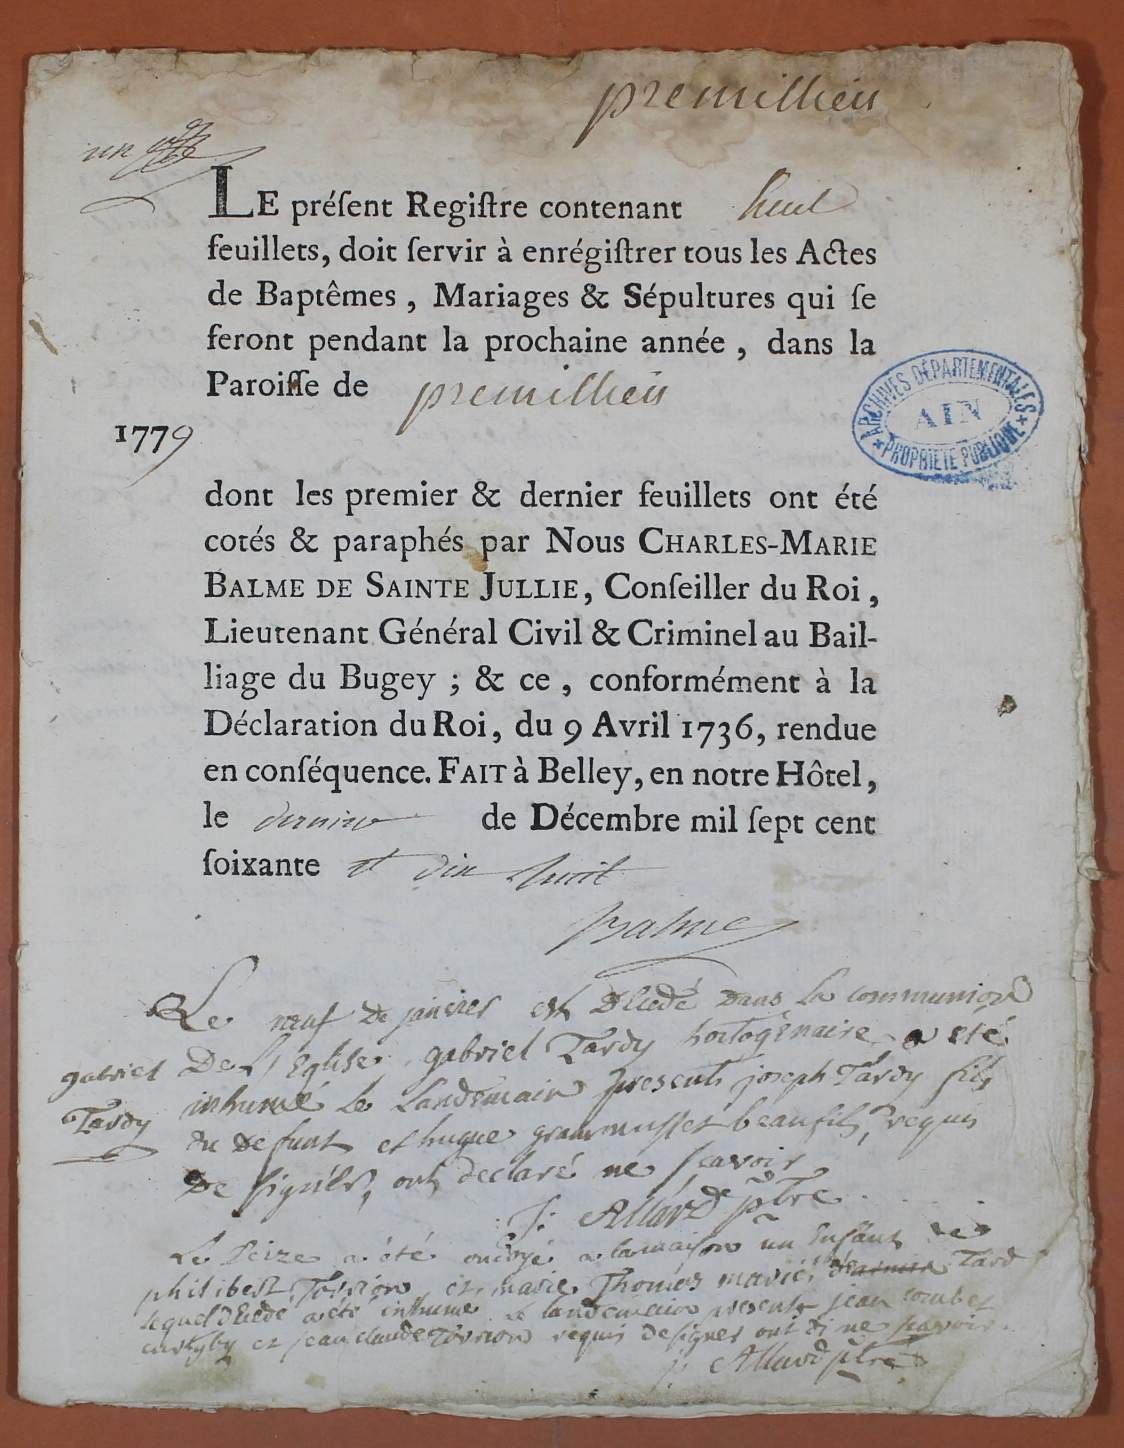 premillieu
un
LE préſent Regiſtre contenant huit
feuillets, doit ſervir à enrégiſtrer tous les Actes
de Baptêmes, Mariages & Sépultures qui ſe
feront pendant la prochaine année, dans la
Paroiſſe de premillieu
1779
ARCHIVES DÉPARTEMENTALES
AIN
PROPRIÉTÉ PUBLIQUE
dont les premier & dernier feuillets ont été
cotés & paraphés par Nous CHARLES-MARIE
BALME DE SAINTE JULLIE, Conſeiller du Roi,
Lieutenant Général Civil & Criminel au Bail-
liage du Bugey ; & ce, conformément à la
Déclaration du Roi, du 9 Avril 1736, rendue
en conſéquence. FAIT à Belley, en notre Hôtel,
le dernier de Décembre mil ſept cent
ſoixante et dix huit
Balme
Le neuf de janvier est décédé dans la communion
gabriel
Tardy
De L'Eglise gabriel Tardy hoctogénaire a eté
inhumé le Landemain présents joseph Tardy fils
du defunt et hugue grammusset beaufils, requis
De signer, ont declaré ne scavoir
J: Allard ptre
Le seize a été ondoyé a la maison un Enfant de
philibert Torrion et marie Thomas mariés Tard
lequel décédé a été inhumé le landemain presents jean combet
et jean claude Torrion requis de signer ont di ne scavoir.
j: Allard ptre